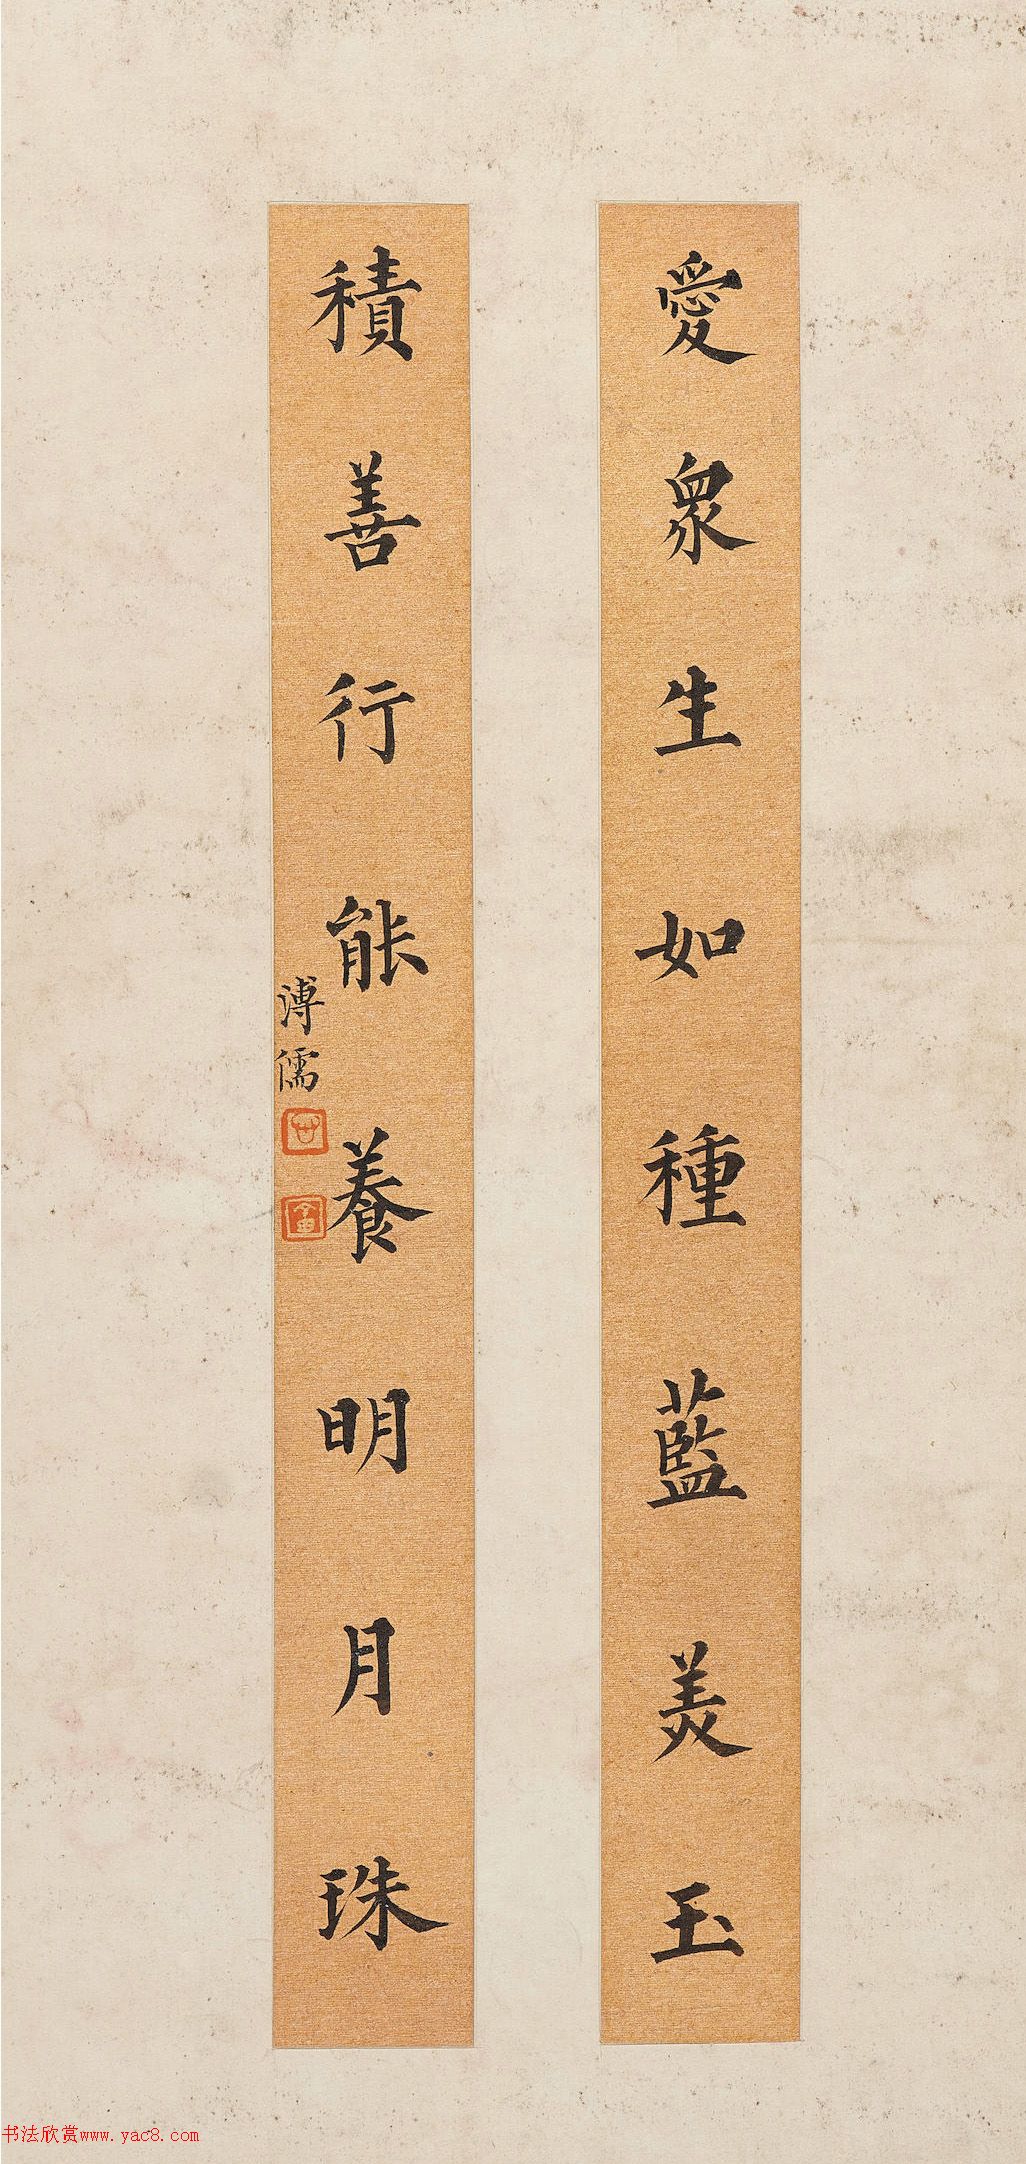 愛眾生如種藍美玉
積善行能養明月珠
溥儒
书法欣赏www.yac8.com